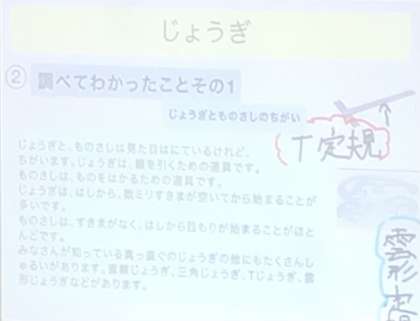 じょうぎ
② 調べてわかったことその1
じょうぎとものさしのちがい
T定規
じょうぎと、ものさしは見た目はにているけれど、
ちがいます。じょうぎは、線を引くための道具です。
ものさしは、ものをはかるための道具です。
じょうぎは、はしから、数ミリすきまが空いてから始まることが
多いです。
ものさしは、すきまがなく、はしから目もりが始まることがほと
んどです。
みなさんが知っている真っ直ぐのじょうぎの他にもたくさんし
ゅるいがあります。直線じょうぎ、三角じょうぎ、Tじょうぎ、雲
形じょうぎなどがあります。
雲形定